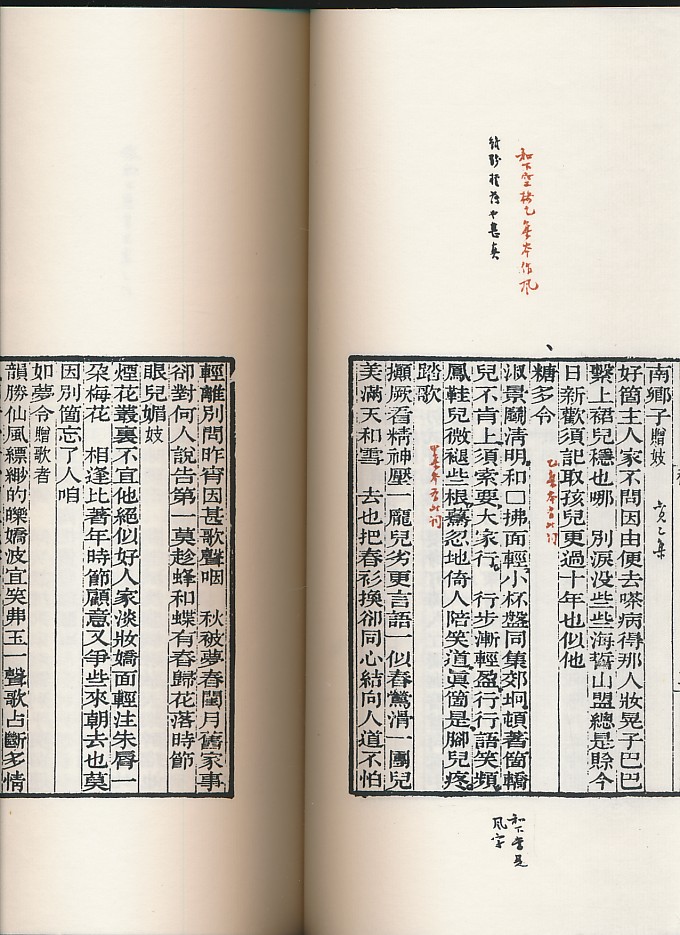 南鄉子贈妓
好箇主人家不問因由便去嗏病得那人妝晃子巴巴
繫上裙兒穩也哪　別淚沒些些海誓山盟總是賒今
日新歡須記取孩兒更過十年也似他
糖多令
淑景鬭淸明和□拂面輕小杯盤同集郊坰頓著箇轎
兒不肯上須索要大家行　行步漸輕盈行行語笑頻
鳳鞋兒微褪些根驀忽地倚人陪笑道眞箇是腳兒疼
踏歌
攧厥看精神壓一龐兒劣更言語一似春鶯滑一團兒
美滿天和雪　去也把春衫換卻同心結向人道不怕
輕離別問昨宵因甚歌聲咽　秋被夢春閨月舊家事
卻對何人說告第一莫趁蜂和蝶有春歸花落時節
眼兒媚妓
煙花叢裏不宜他絕似好人家淡妝嬌面輕注朱脣一
朶梅花　相逢比著年時節顧意又爭些來朝去也莫
因別箇忘了人咱
如夢令贈歌者
韻勝仙風縹緲的皪嬌波宜笑弗玉一聲歌占斷多情
和下空格乙集本作風
和下當是
風字